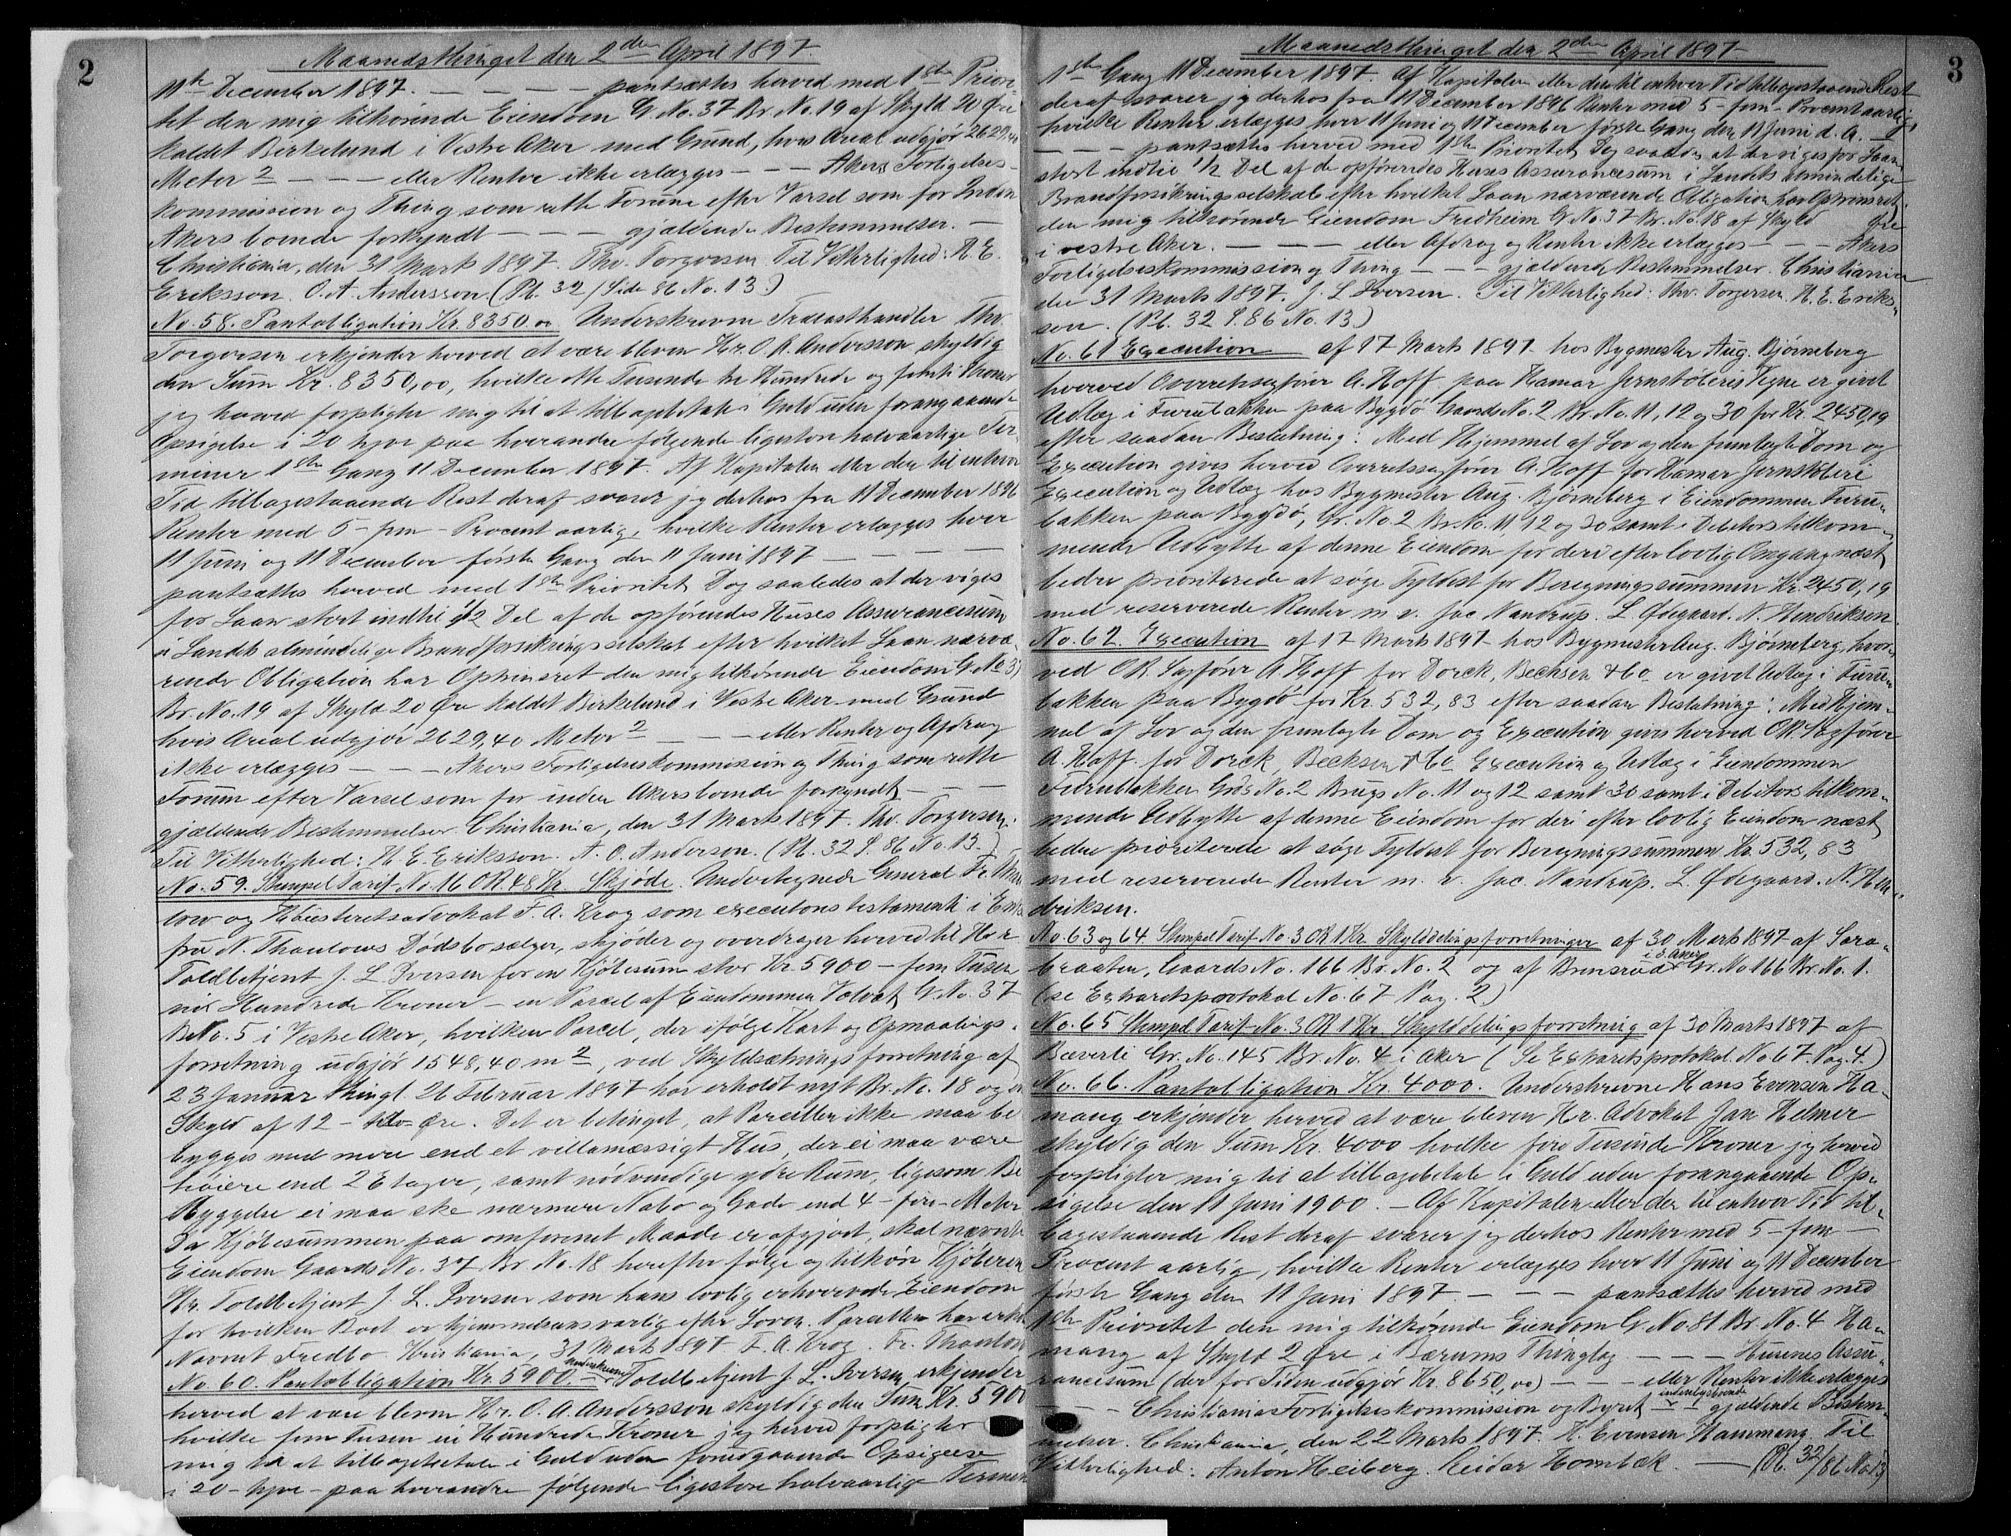 2
Maanedsthinget den 2den April 1897
11te December 1897. — — — — pantsættes herved med 1ste Priori-
tet den mig tilhørende Eiendom G. No. 37 Br. No. 19 af Skyld 20 Øre
kaldet Birkelund i Vestre Aker med Grund, hvis Areal udgjør 2629,40
Meter 2 — — — eller Renter ikke erlægges — — — Akers Forligelses-
kommission og Thing som rette Forum efter Varsel som for inden
Akers boende forkyndt — — — gjældende Bestemmelser. —
Christiania, den 31 Marts 1897. Thv. Torgersen. Til Vitterlighed: H. E.
Eriksson. O. A. Andersson. (Pb. 32 / Side 86 No. 13.)
No. 58. Pantobligation Kr. 8350.00 Underskrevne Trælasthandler Thv.
Torgersen erkjender herved at være bleven Hr. O. A. Andersson skyldig
den Sum Kr. 8350,00, hvilke otte Tusende tre Hundrede og femti Kroner
jeg herved forpligter mig til at tilbagebetale i Guld uden forangaaende
Opsigelse i 20 tyve paa hverandre følgende ligestore halvaarlige Ter-
miner 1ste Gang 11 December 1897. Af Kapitalen eller den til enhver
Tid tilbagestaaende Rest deraf svarer jeg derhos fra 11 December 1896
Renter med 5 - fem - Procent aarlig, hvilke Renter erlægges hver
11 Juni og 11 December første Gang den 11 Juni 1897 — — — —
pantsættes herved med 1ste Prioritet, Dog saaledes at der viges
for Laan stort indtil 1/2 Del af de opførendes Huses Assurancesum
i Landets almindelige Brandforsikringsselskab efter hvilket Laan nærvæ-
rende Obligation har Optrinsret den mig tilhørende Eiendom G. No. 37
Br. No. 19 af Skyld 20 Øre kaldet Birkelund i Vestre Aker med Grund
hvis Areal udgjør 2629,40 Meter 2 — — — eller Renter og Afdrag
ikke erlægges — — — Akers Forligelseskommission og Thing som rette
Forum efter Varsel som for inden Akers boende forkyndt — — —
gjældende Bestemmelser. Christiania, den 31 Marts 1897. Thv. Torgersen.
Til Vitterlighed: H. E. Eriksson. A. O. Anderson. (Pb. 32 S. 86 No. 13.)
No. 59. Stempel Tarif No. 16 OR. 48 Kr. Skjøde. Undertegnede General Fr. Thau
low og Høiesteretsadvokat F. A. Krog som executores testamenti i Enke
fru N. Thaulows Dødsbo sælger, skjøder og overdrager herved til Herr
Toldbetjent J. L. Iversen for en Kjøbesum stor Kr. 5900 – fem Tusen
ni Hundrede Kroner – en Parcel af Eiendommen Volvat G. No. 37
B. No. 5 i Vestre Aker, hvilken Parcel, der ifølge Kart og Opmaalings-
forretning udgjør 1548,40 m 2, ved Skyldsætningsforretning af
23 Januar thingl. 26 Februar 1897 har erholdt nyt Br. No. 18 og en
Skyld af 12 – tolv Øre. Det er betinget, at Parcellen ikke maa be
bygges med mere end et villamæssigt Hus, der ei maa være
høiere end 2 Etager, samt nødvendige ydre Rum, ligesom Be
byggelse ei maa ske nærmere Nabo og Gade end 4 – fire – Meter
Da Kjøbesummen paa omforenet Maade er afgjort, skal nævnte
Eiendom Gaards No. 37 Br. No. 18 herefter følge og tilhøre Kjøberen
Hr. Toldbetjent J. L. Iversen som hans lovlig erhvervede Eiendom
for hvilken Boet er hjemmelsansvarlig efter Loven. Parcellen har erholdt
Navnet Fredbo. Kristiania, 31 Marts 1897 F. A. Krog. Fr. Thaulow
No. 60. Pantobligation Kr. 5900. — Underskrevne Toldbetjent J. L. Iversen, erkjender
herved at være bleven Hr. O. A. Andersson skyldig den Sum Kr. 5900
hvilke fem Tusen ni Hundrede Kroner jeg herved forpligter
mig til at tilbagebetale i Guld uden foregaaende Opsigelse
i 20 - tyve - paa hverandre følgende ligestore halvaarlige Terminer
3
Maanedsthinget den 2den April 1897
1ste Gang 11 December 1897. Af Kapitalen eller den til enhver Tid tilbagestaaende Rest
deraf svarer jeg derhos fra 11 December 1896 Renter med 5 - fem - Procent aarlig,
hvilke Renter erlægges hver 11 Juni og 11 December første Gang den 11 Juni d. A. —
— — — pantsættes herved med 1ste Prioritet, Dog saaledes at der viges for Laan
stort indtil 1/2 Del af de opførendes Huses Assurancesum i Landets almindelige
Brandforsikringsselskab efter hvilket Laan nærværende Obligation har Optrinsret
den mig tilhørende Eiendom Fredheim G. No. 37 Br. No. 18 af Skyld Øre
i vestre Aker. — — — — eller Afdrag og Renter ikke erlægges — — — Akers
Forligelseskommission og Thing — — — gjældende Bestemmelser. Christiania
den 31 Marts 1897. J. L. Iversen. Til Vitterlighed: Thv. Torgersen. H. E. Eriks-
son. (Pb. 32 S. 86 No. 13)
No. 61 Execution af 17 Marts 1897 hos Bygmester Aug. Bjørneberg
hvorved Overretssagfører A. Hoff paa Hamar Jernstøberis Vegne er givet
Udlæg i Furubakken paa Bygdø Gaards No. 2 Br. No. 11, 12 og 30 for Kr. 2450,19
efter saadan Beslutning: Med Hjemmel af Lov og den fremlagte Dom og
Execution gives herved Overretssagfører A. Hoff for Hamar Jernstøberi
Execution og Udlæg hos Bygmester Aug. Bjørneberg i Eiendommen Furu-
bakken paa Bygdø, Gr. No. 2 Br. No. 11, 12 og 30 samt i Debitors tilkom-
mende Udbytte af denne Eiendom for deri efter lovlig Omgang næst
bedre prioriterede at søge Fyldest for Beregningssummen Kr. 2450,19
med reserverede Renter m. v. Jac. Nandrup. L. Ødegaard. N. Hendriksen.
No. 62. Execution af 17 Marts 1897 hos Bygmester Aug. Bjørneberg, hvor-
ved O.R. Sagfører A. Hoff for Dorck, Becksen & Co er givet Udlæg i Furu-
bakken paa Bygdø for Kr. 532,83 efter saadan Beslutning: Med Hjem-
mel af Lov og den fremlagte Dom og Execution gives herved O.R. Sagfører
A. Hoff for Dorck, Becksen & Co Execution og Udlæg i Eiendommen
Furubakken Grds No. 2 Brugs No. 11 og 12 samt 30 samt i Debitors tilkom-
mende Udbytte af denne Eiendom for deri efter lovlig Eiendom næst
bedre prioriterede at søge Fyldest for Beregningssummen Kr. 532,83
med reserverede Renter m. v. Jac. Nandrup. L. Ødegaard. N. Hen-
driksen.
No. 63 og 64 Stempel Tarif No. 3 OR 1 Kr. Skylddelingsforretninger af 30 Marts 1897 af Sara-
braaten, Gaards No. 166 Br. No. 2 og af Brunsrud i Ø. Aker Gr. No. 166 Br. No. 1.
(se Extraretsprotokol No. 67 Pag. 2.)
No. 65 Stempel Tarif No. 3 OR 1 Kr. Skylddelingsforretning af 30 Marts 1897 af
Bæverli Gr. No. 145 Br. No. 4 i Aker (Se Extraretsprotokol No. 67 Pag. 4.)
No. 66. Pantobligation Kr. 4000. Underskrevne Hans Evensen Ha-
mang erkjender herved at være bleven Hr. Advokat Jan Helmer
skyldig den Sum Kr. 4000 hvilke fire Tusinde Kroner jeg herved
forpligter mig til at tilbagebetale i Guld uden forangaaende Op-
sigelse den 11 Juni 1900. – Af Kapitalen eller den til enhver Tid til-
bagestaaende Rest deraf svarer jeg derhos Renter med 5 - fem -
Procent aarlig, hvilke Renter erlægges hver 11 Juni og 11 December
første Gang den 11 Juni 1897. — — — pantsættes herved med
1ste Prioritet den mig tilhørende Eiendom Gr. No. 81 Br. No. 4 Ha-
mang af Skyld 2 Øre i Bærums Thinglag — — — Husenes Assu-
rancesum (der for Tiden udgjør Kr. 8650,00) — — — eller Renter ikke erlægges
— — — Christiania Forligelseskommission og Byret indenbysboende gjældende Bestem-
melser. Christiania, den 22 Marts 1897. H. Evensen Hammang. Til
Vitterlighed: Anton Heiberg. Reidar Hornbæk — (Pb. 32/86 No. 13)